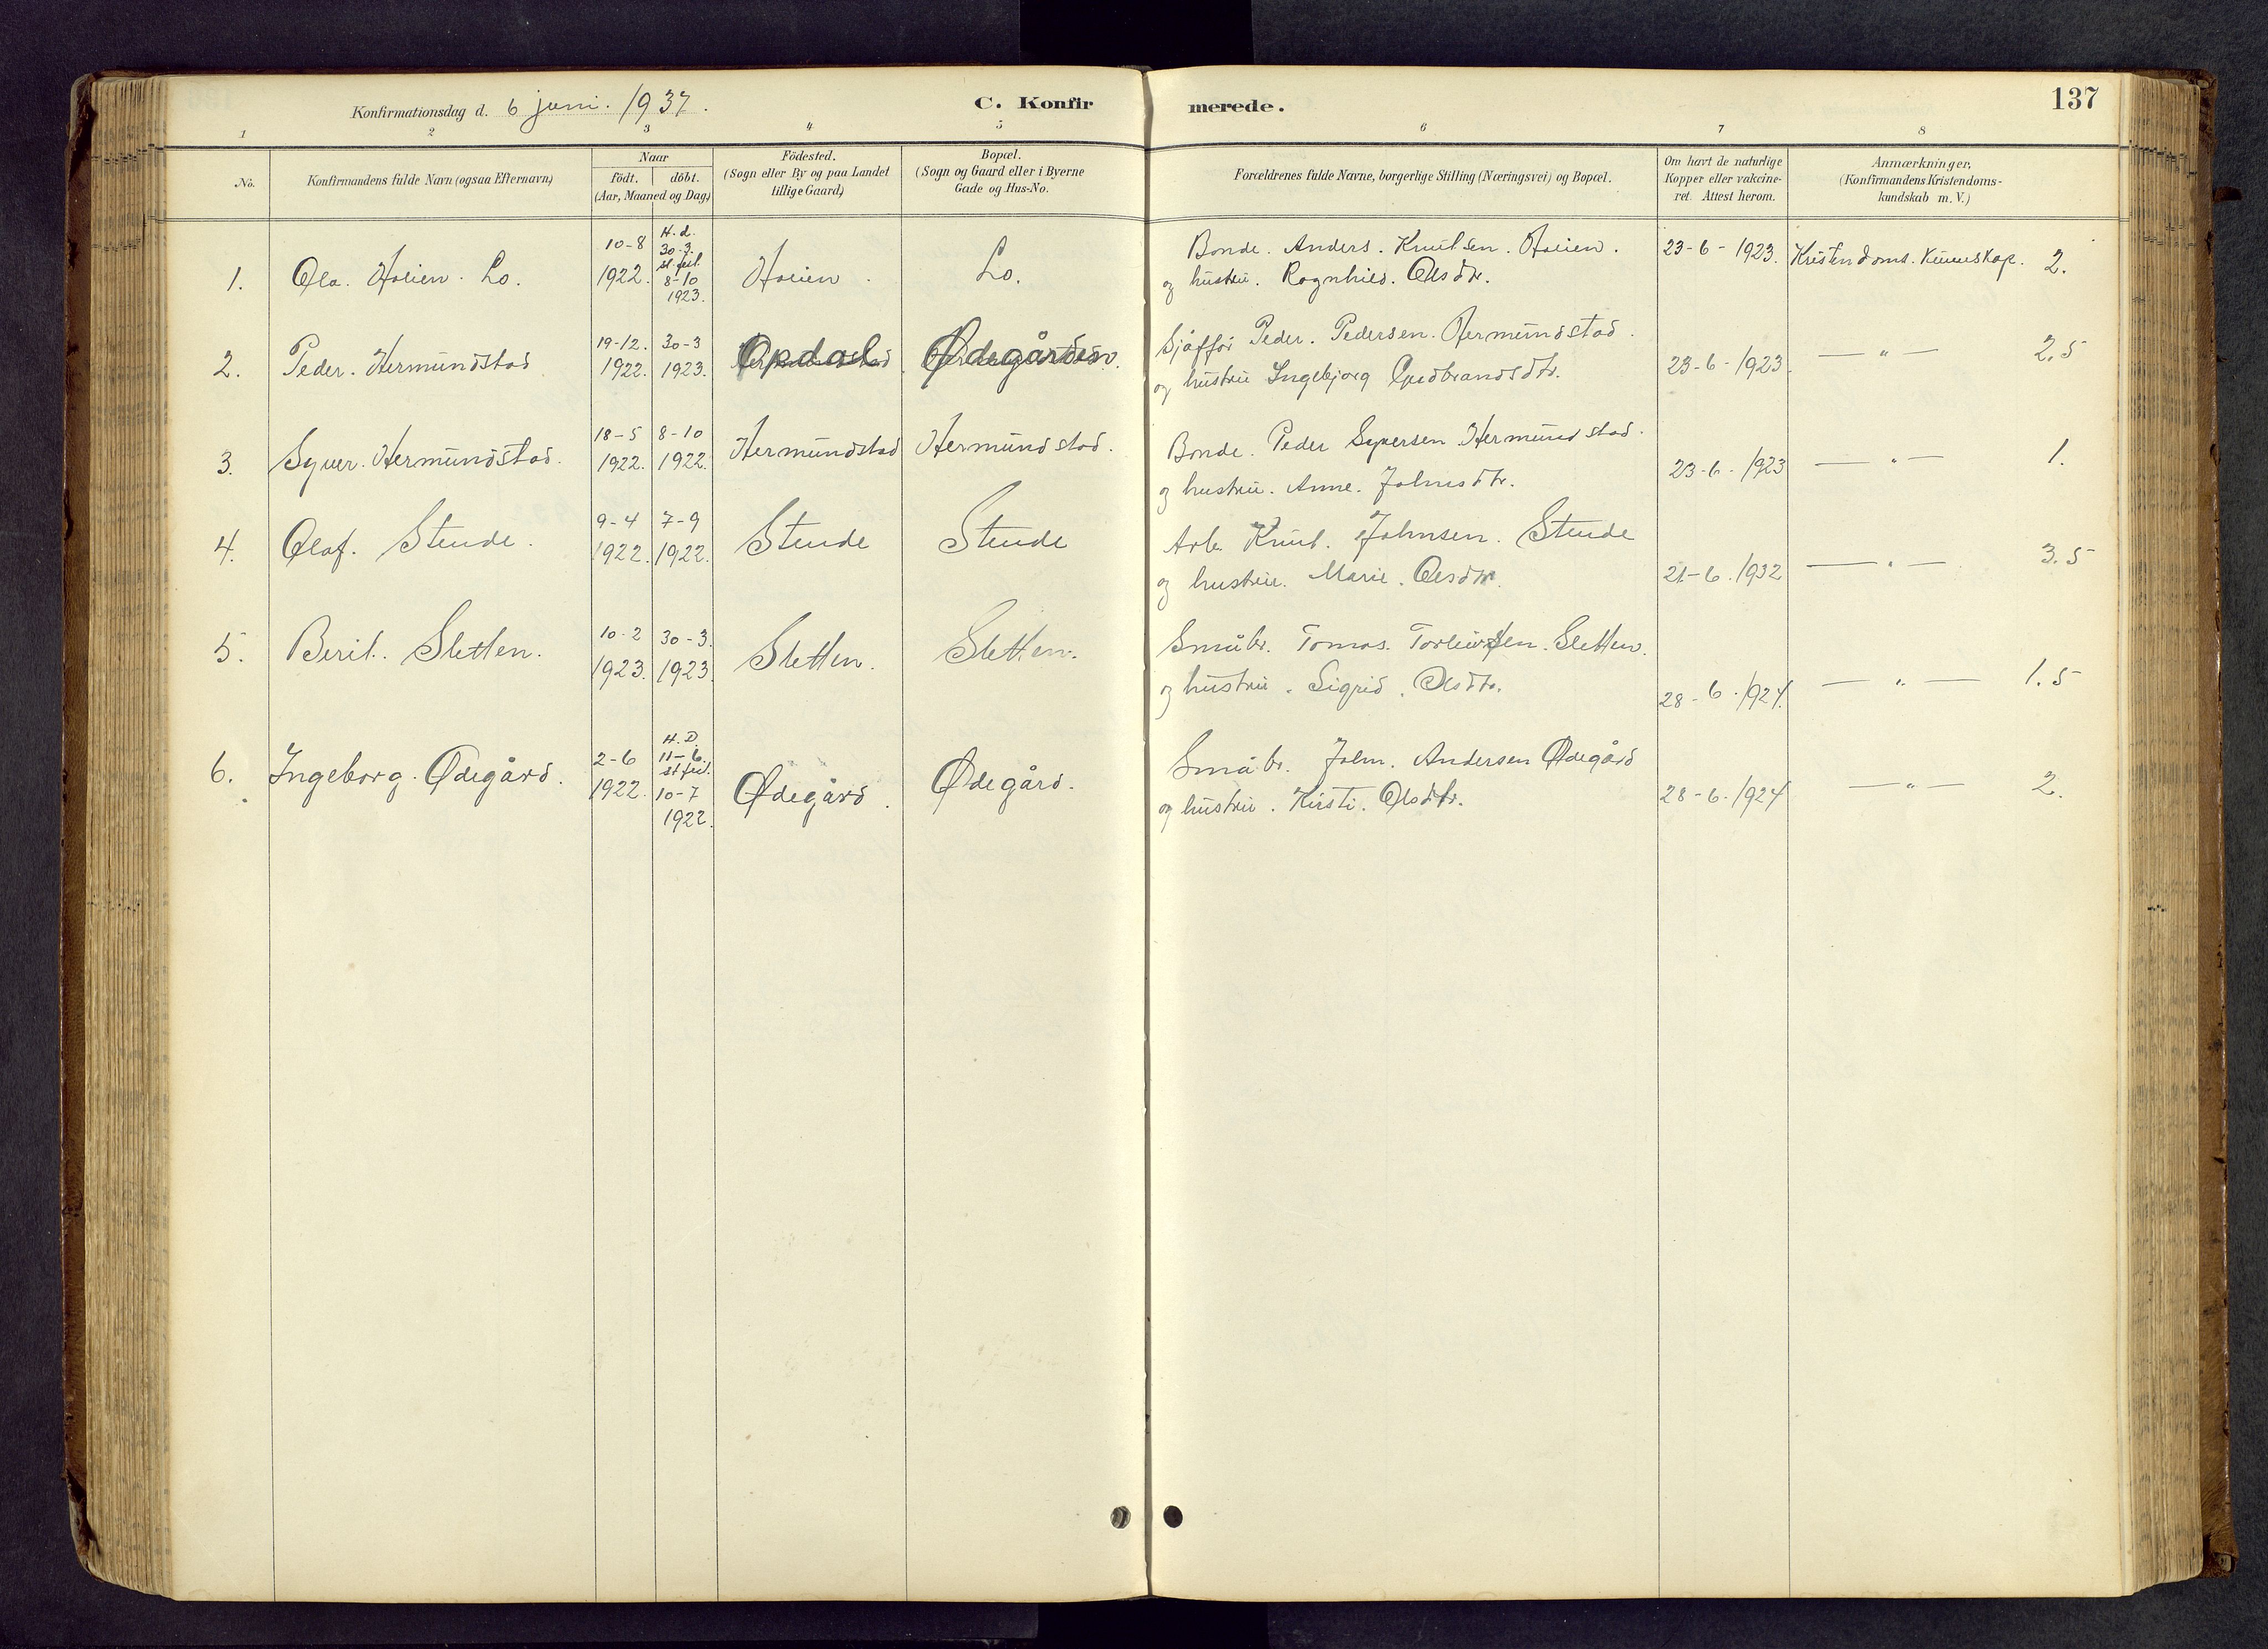 Konfirmationsdag d. 6 juni. 1937. C. Konfir merede. 137
1 2 3 4 5 6 7 8
No. Konfirmandens fulde Navn (ogsaa Efternavn) Naar födt. döbt. (Aar, Maaned og Dag) Födested. (Sogn eller By og paa Landet tillige Gaard) Bopæl. (Sogn og Gaard eller i Byerne Gade og Hus-No. Forældrenes fulde Navne, borgerlige Stilling (Næringsvei) og Bopæl. Om havt de naturlige Kopper eller vakcineret. Attest herom. Anmærkninger. (Konfirmandens Kristendomskundskab m. V.)
1. Ola. Høien. Lo. 10-8 1922. H. d. 30-3. st. feil. 8-10 1923. Høien. Lo. Bonde. Anders. Knutsen. Høien. 23-6-1923. Kristendoms. kunnskap. 2.
og hustru. Ragnhild. Olsdtr.
2. Peder. Hermundstad 19-12. 1922. 30-3 1923. Opdal Ødegården. Sjåffør Peder. Pedersen. Hermundstad.
og hustru Ingebjørg Gudbrandsdtr. 23-6-1923. — " — 2.5
3. Syver. Hermundstad. 18-5 1922. 8-10 1922. Hermundstad Hermundstad. Bonde. Peder Syversen Hermundstad.
og hustru. Anne. Johnsdtr. 23-6-1923 — " — 1.
4. Olaf. Stende. 9-4 1922. 7-9 1922. Stende Stende Arb. Knut. Johnsen. Stende
og hustru. Marie. Olsdtr. 21-6.1932 — " — 3.5
5. Berit. Sletten. 10-2 1923. 30-3. 1923. Sletten. Sletten. Småbr. Tomas. Torleivsen. Sletten.
og hustru. Sigrid. Olsdtr. 28-6.1924. — " — 1.5
6. Ingeborg. Ødegård. 2-6 1922. H.D. 11-6. st feil. 10-7 1922. Ødegård. Ødegård. Småbr. John. Andersen Ødegård
og hustru. Kirsti. Olsdtr. 28-6.1924 — " — 2.